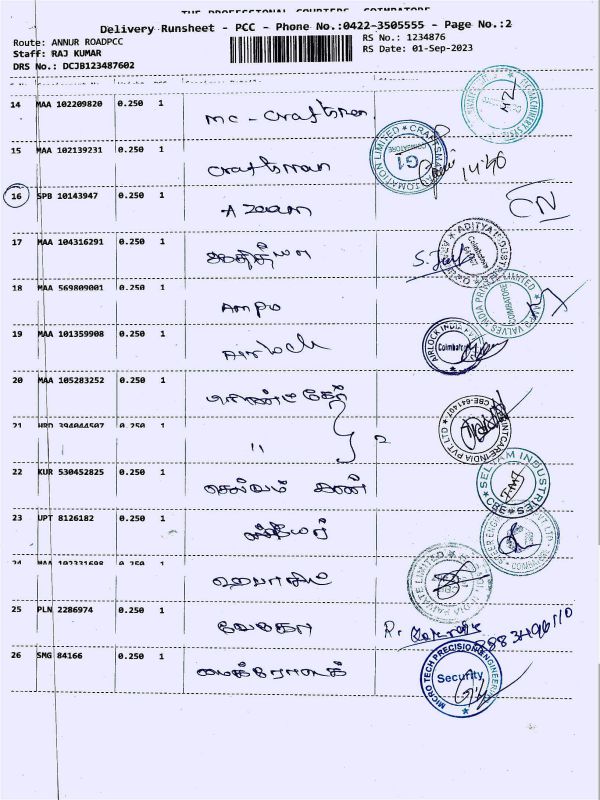 THE PROFESSIONAL COURIERS, COIMBATORE
Delivery Runsheet - PCC - Phone No.:0422-3505555 - Page No.:2
Route: ANNUR ROADPCC
RS No.: 1234876
Staff: RAJ KUMAR
RS Date: 01-Sep-2023
DRS No.: DCJB123487602
14 MAA 102209820 0.250 1 MC-Craftsman
15 MAA 102139231 0.250 1 Craftsman CRAFTSMAN AUTOMATION LIMITED COIMBATORE G1 14:40
16 SPB 10143947 0.250 1 Azoom CN
17 MAA 104316291 0.250 1 ஆதித்யா ADITYA INDUST Coimbatore
18 MAA 569809001 0.250 1 Ampo AMPO VALVES INDIA PRIVATE LIMITED COIMBATORE
19 MAA 101359908 0.250 1 Airlock AIRLOCK INDIA Coimbatore
20 MAA 105283252 0.250 1 பிரிண்ட் கேர் PRINTCARE INDIA PVT LTD CBE-641407
21 HRD 394044507 0.250 1 " 2
22 KUR 530452825 0.250 1 SELVAM INDUSTRIES CBE
23 UPT 8126182 0.250 1
24 MAA 102331698 0.250 1 PRIVATE LIMITED
25 PLN 2286974 0.250 1 R.
26 SMG 84166 0.250 1 மைக்ரோடெக் MICRO TECH PRECISION ENGINEERING Security